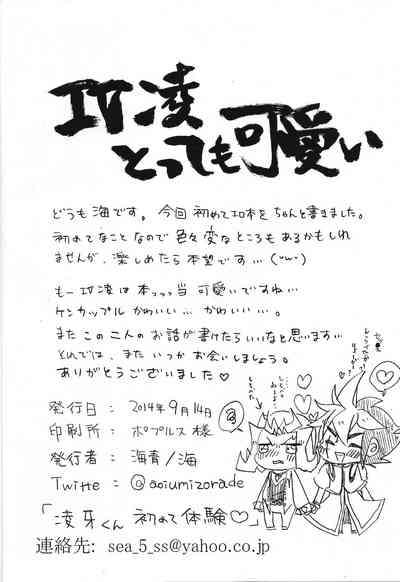 IV凌
とっても可愛い
どうも海です。今回初めてエロ本をちゃんと書きました。
初めてなことなので色々変なところもあるかもしれ
ませんが、楽しめたら本望です…(´`)
もーIV凌は本っっっ当可愛いですね…
ケンカップルかわいい…かわいい…。
またこの二人のお話が書けたらいいなと思います…
それでは、またいつかお会いしましょう。
ありがとうございました♡
発行日：2014年9月14日
印刷所：ポプルス様
発行者：海青/海
Twitte：@aoiumizorade
「凌牙くん初めて体験♡」
連絡先: sea_5_ss@yahoo.co.jp